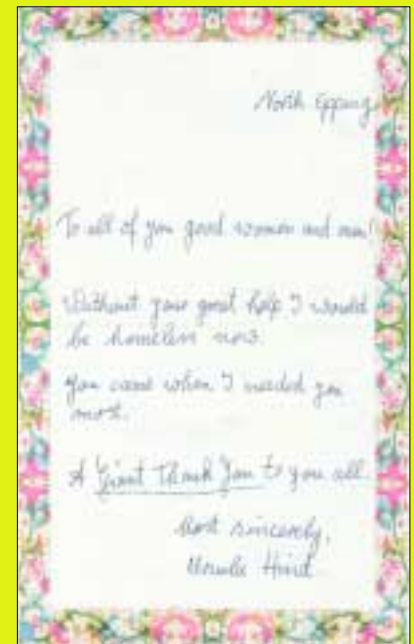 North Epping
To all of you good women and men!
Without your great help I would
be homeless now.
You came when I needed you
most.
A Giant Thank You to you all.
Most sincerely,
Ursula Hind